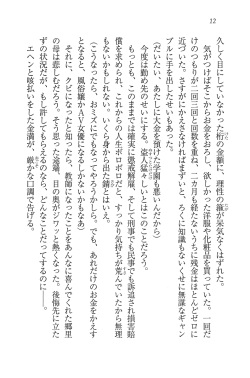 12
久しく目にしていなかった桁の金額に、理性の箍が呆気なくはずれた。
気がつけばそこからお金をおろし、欲しかった洋服や化粧品を買っていた。一回だ
けのつもりが二回三回と回数を重ね、二カ月も経たないうちに残金はほとんどゼロに
近づく。さすがにかえさなければまずいと、ろくに知識もないくせに無謀なギャン
ブルに手を出したせいで、あっという間にすべてを失った。
（だいたい、あたしに人金を預けた学園も悪いんだから）
今度は勤め先のせいにする。盗人猛々しいとはこのことだろう。
もっとも、このままでは確実に懲戒解雇、そして刑事でも民事でも訴追され損害賠
償を求められ、これからの人生ボロボロだと、すっかり気持ちが荒んでいたから無理
もないかもしれない。いくら身から出た錆とはいえ。
（こうなったら、おミズにでもなってやろうかしら。でも、あれだけのお金をかえす
となると、風俗嬢かＡＶ女優になるしかないかも）
それに、クビになったと知ったら、教師になったことをあんなに喜んでくれた郷里
の母は悲しむだろう。そう思った途端、目の奥がジンと熱くなった。後悔先に立た
ずの状況だが、もし許してもらえるのなら、どんなことだってするのに――。
エヘンと咳払いをした金満が、厳かな口調で告げる。